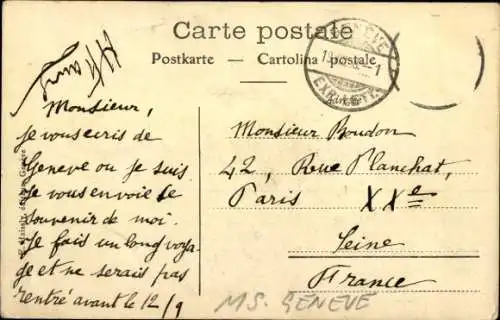 Carte postale
Postkarte — Cartolina postale
GENÈVE
EXP. LETT.
Monsieur,
je vous ecris de
Geneve ou je suis
Je vous envoie le
souvenir de moi.
Je fais un long voya-
ge et ne serais pas
rentré avant le 12/9
Monsieur Boudon
42, Rue Planchat,
Paris XXe
Seine
France
MS. GENEVE